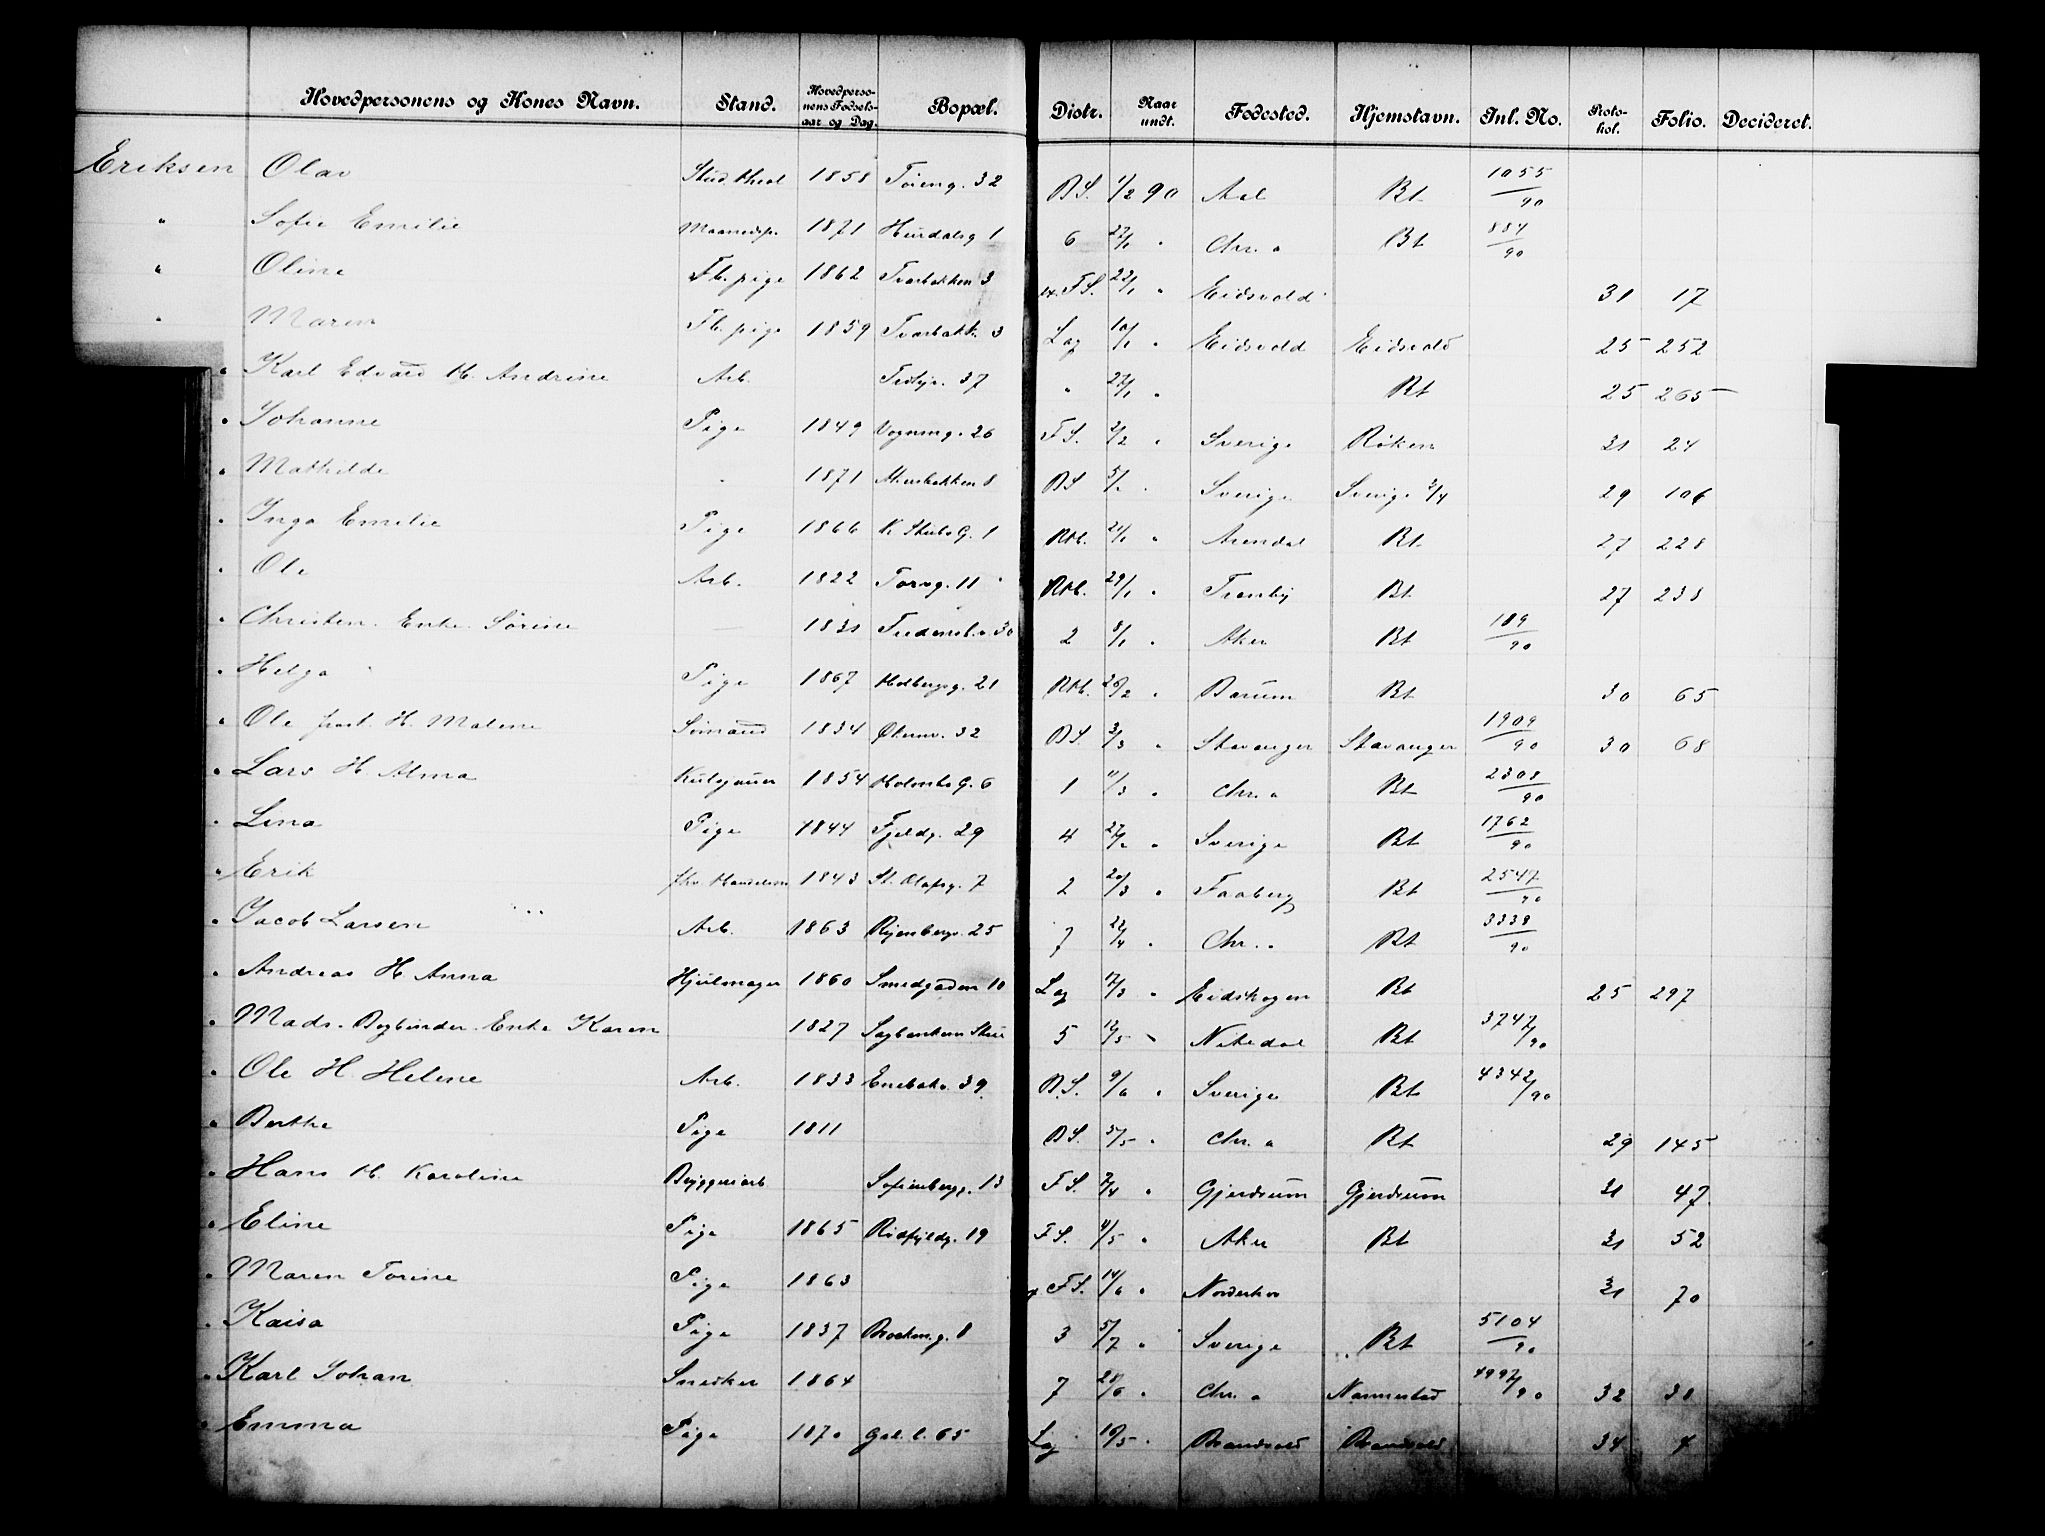 Hovedpersonens og Kones Navn. Stand. Hovedpersonens Fødselsaar og Dag. Bopæl. Distr. Naar undt. Fødested. Hjemstavn. Inl. No. Protokol. Folio. Decideret.
Eriksen Olav Stud. theol 1858 Tøieng. 32 B.S. 1/2 90 Aal Bt 1055/90
" Sofie Emilie Maanedsp. 1871 Hurdalsg 1 6 27/1 " Chr. a Bt 884/90
" Oline Fb. pige 1862 Tvarbakken 3 F.S. 23/1 " Eidsvold 31 17
" Maren Fb. pige 1859 Tvarbakk. 3 Lag 10/1 " Eidsvold Eidsvold 25 252
" Karl Edvard H. Andrine Arb. 37 " 27/1 " Bt 25 265
" Johanne Pige 1849 Vognmg. 26 F.S. 2/2 " Sverige Røken 31 24
" Mathilde " 1871 Akersbakken 8 B.S 5/2 " Sverige Sverige 2/4 29 106
" Inga Emilie Pige 1866 K. Stubs G. 1 Rkh. 21/1 " Arendal Bt 27 228
" Ole Arb. 1822 Torvg. 11 Rkh. 29/1 " Tranby Bt 27 238
" Christen. Enke Sørine — 1831 30 2 8/1 " Aker Bt 189/90
" Helga Pige 1867 Holbergsg. 21 Rkh. 26/2 " Bærum Bt 30 65
" Ole frast. H. Malene Sømand 1834 Økernv. 32 B.S. 3/3 " Stavanger Stavanger 1909/90 30 68
" Lars H. Alma 1854 Holmbo G. 6 1 11/3 " Chr. a Bt 2308/90
" Lina Pige 1844 Fjeldg. 29 4 27/2 " Sverige Bt 1762/90
" Erik fhv. Handelsm 1843 St. Olafsg. 7 2 20/3 " Faaberg Bt 2547/90
" Jacob Larsen Arb. 1863 Ryenbergv. 25 7 22/4 " Chr. a Bt 3339/90
" Andreas H. Anna Hjulmager 1860 Smedgaden 10 Lag 17/3 " Eidskogen Bt 25 297
" Mads. Bogbinder. Enke Karen 1827 Sagbanken 5 12/5 " Nitedal Bt 3747/90
" Ole H. Helene Arb. 1833 Enebakv. 39 B.S. 9/6 " Sverige Bt 4342/90
" Berthe Pige 1811 B.S. 5/5 " Chr. a Bt 29 145
" Hans H. Karoline Bryggeriarb Sofienbergg. 13 F.S. 7/4 " Gjerdrum Gjerdrum 31 47
" Eline Pige 1865 Rødfyldg. 19 F.S. 4/5 " Aker Bt 31 52
" Maren Torine Pige 1863 F.S. 14/6 " Norderhov 31 70
" Kaisa Pige 1837 Brochm.g. 8 3 5/7 " Sverige Bt 5104/90
" Karl Johan Snedker 1864 7 28/6 " Chr. a Nannestad 4997/90 32 38
" Emma Pige 1870 Grl. l. 65 Lag 10/5 " Brandvold Brandvold 34 4